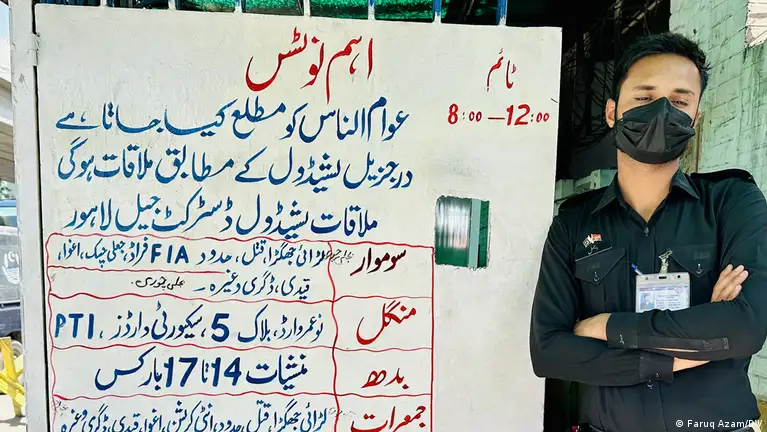 اہم نوٹس
ٹائم
8:00 — 12:00
عوام الناس کو مطلع کیا جاتا ہے
درجزیل شیڈول کے مطابق ملاقات ہوگی
ملاقات شیڈول ڈسٹرکٹ جیل لاہور
سوموار
لڑائی جھگڑا، قتل، حدود FIA فراڈ، جعلی چیک، اغوا،
قیدی، ڈگری وغیرہ -
منگل
نوعمر وارڈ، بلاک 5، سکیورٹی وارڈز، PTI
بدھ
منشیات 14 تا 17 بارکس
جمعرات
لڑائی جھگڑا، قتل، حدود، انٹی کرپشن، اغوا، قیدی، ڈگری وغیرہ
© Faruq Azam/DW